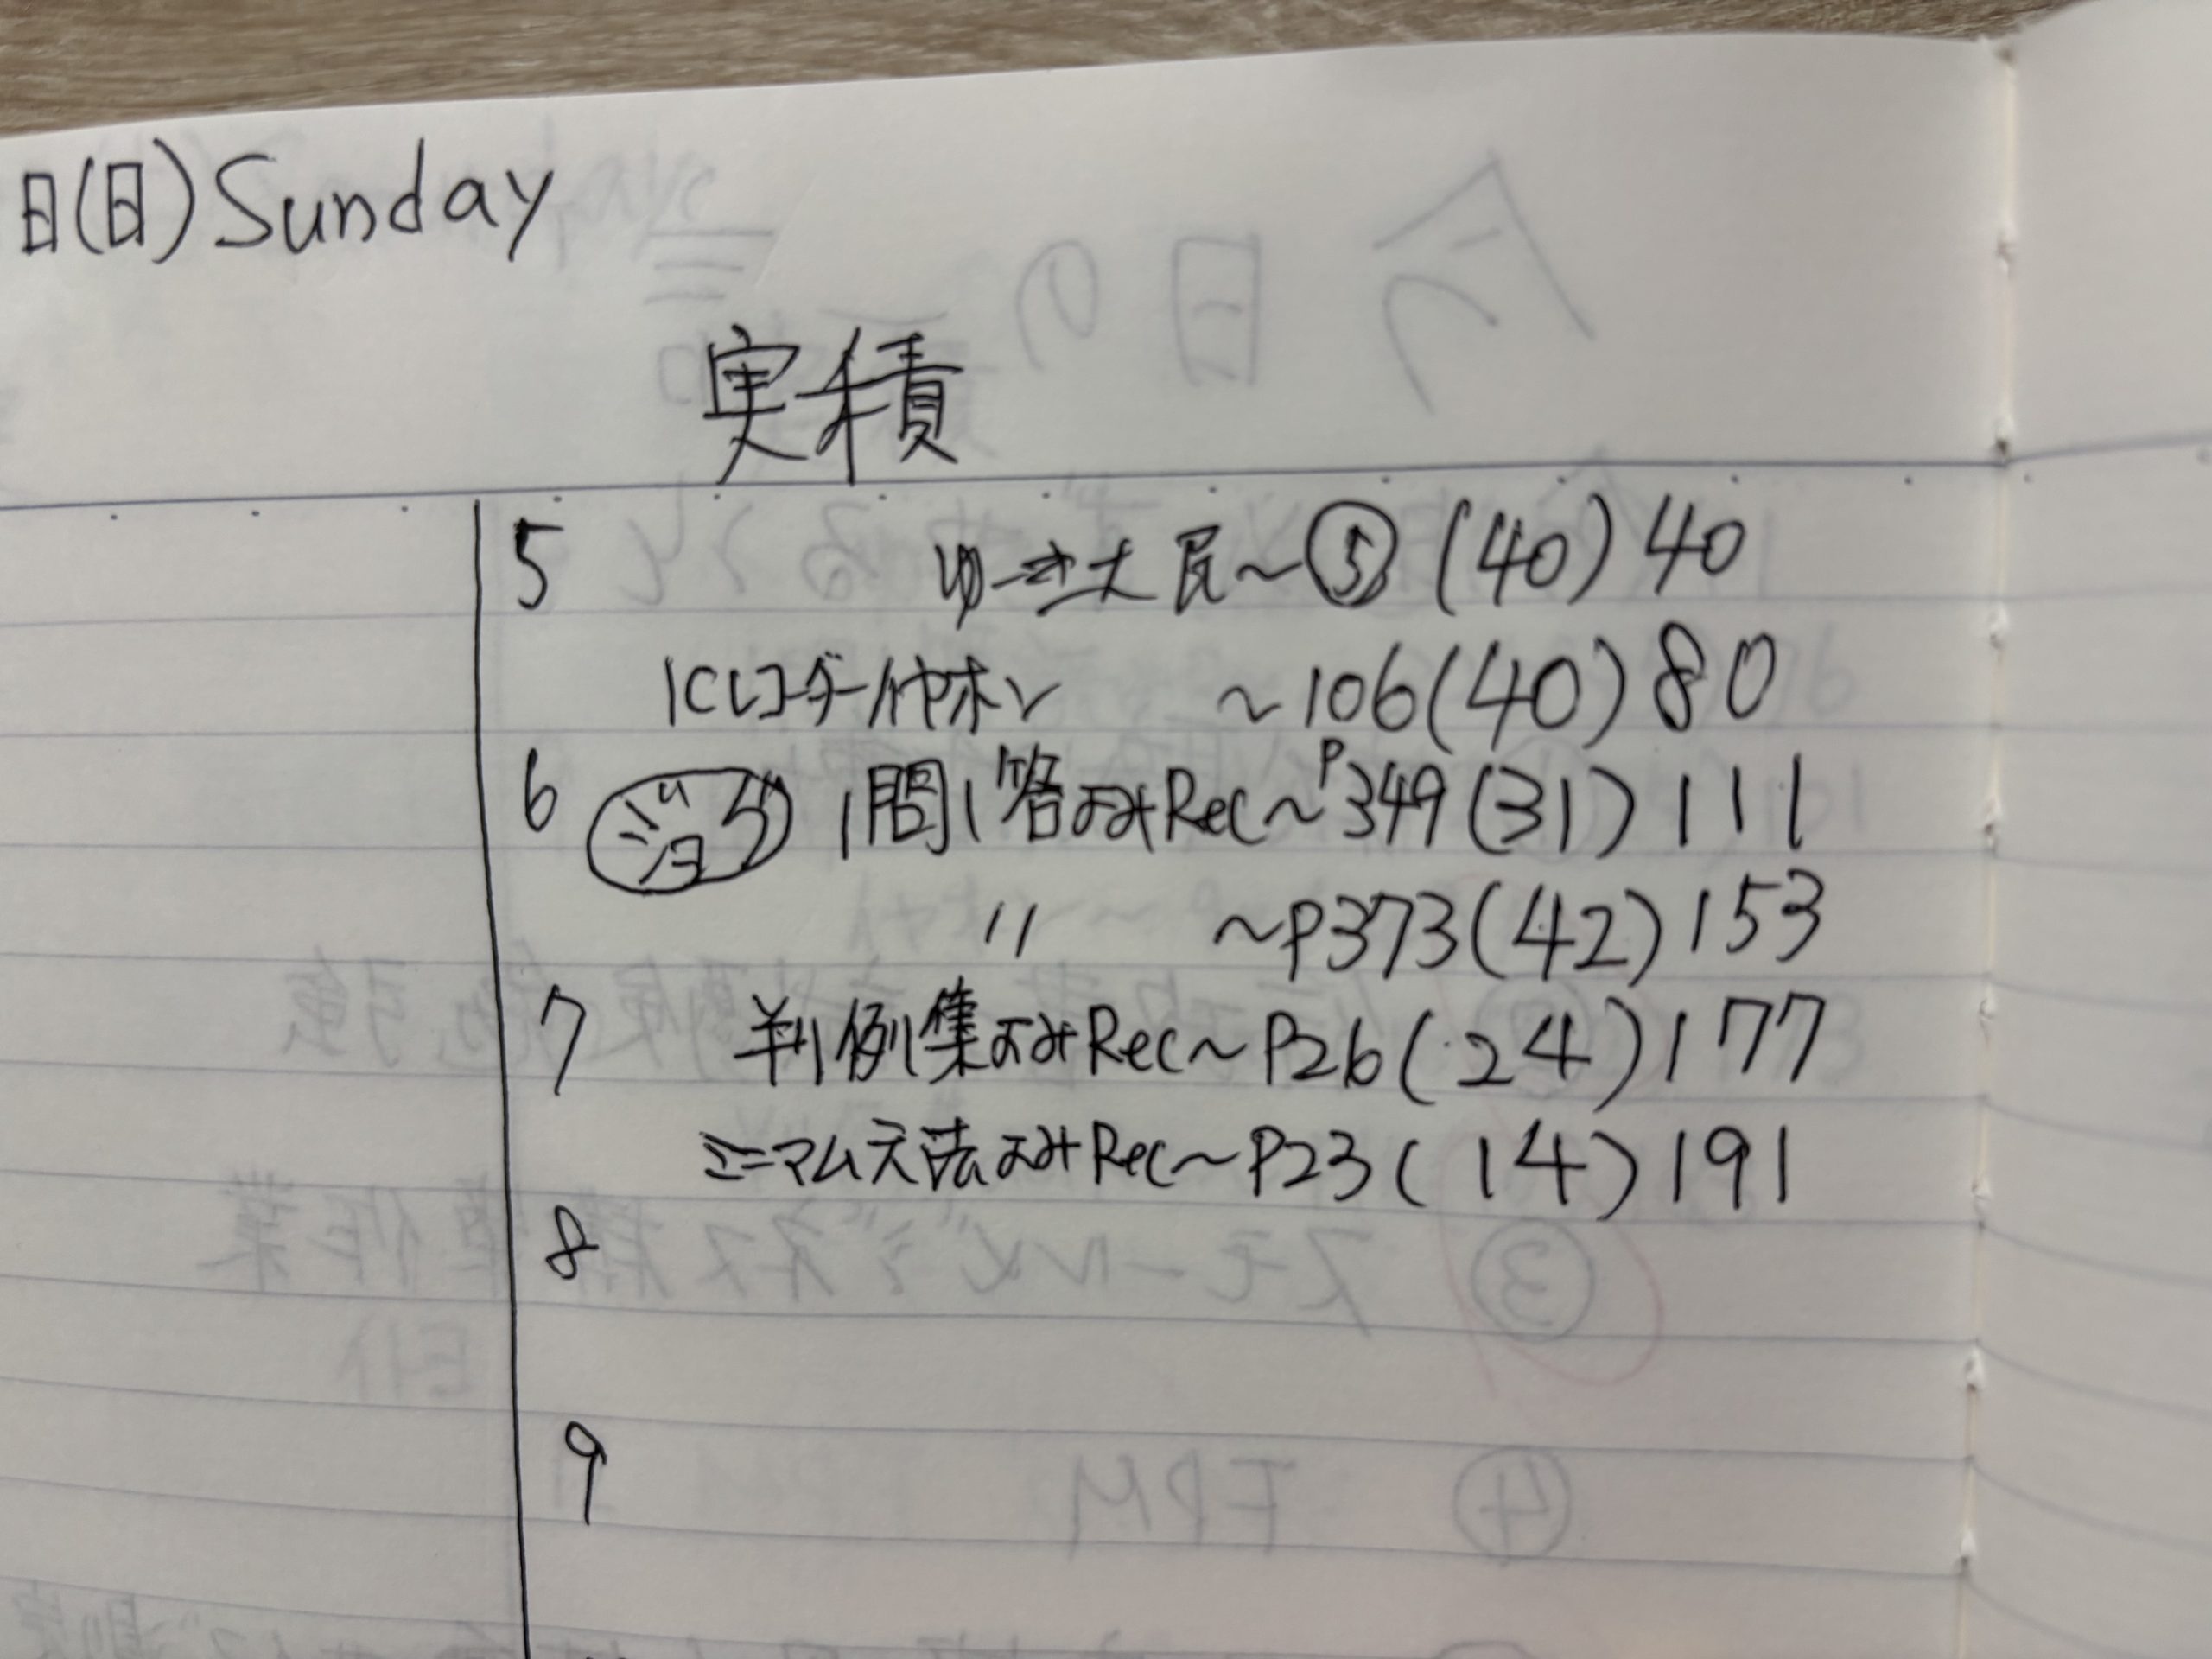 日(日)Sunday
実積
5 ゆーき大民～⑤(40)40
ICレコーダーイヤホン ～106(40)80
6 ジョグ 1問1答よみRec～P349(31)111
〃 ～P373(42)153
7 判例集よみRec～P26(24)177
ミニマム六法よみRec～P23(14)191
8
9